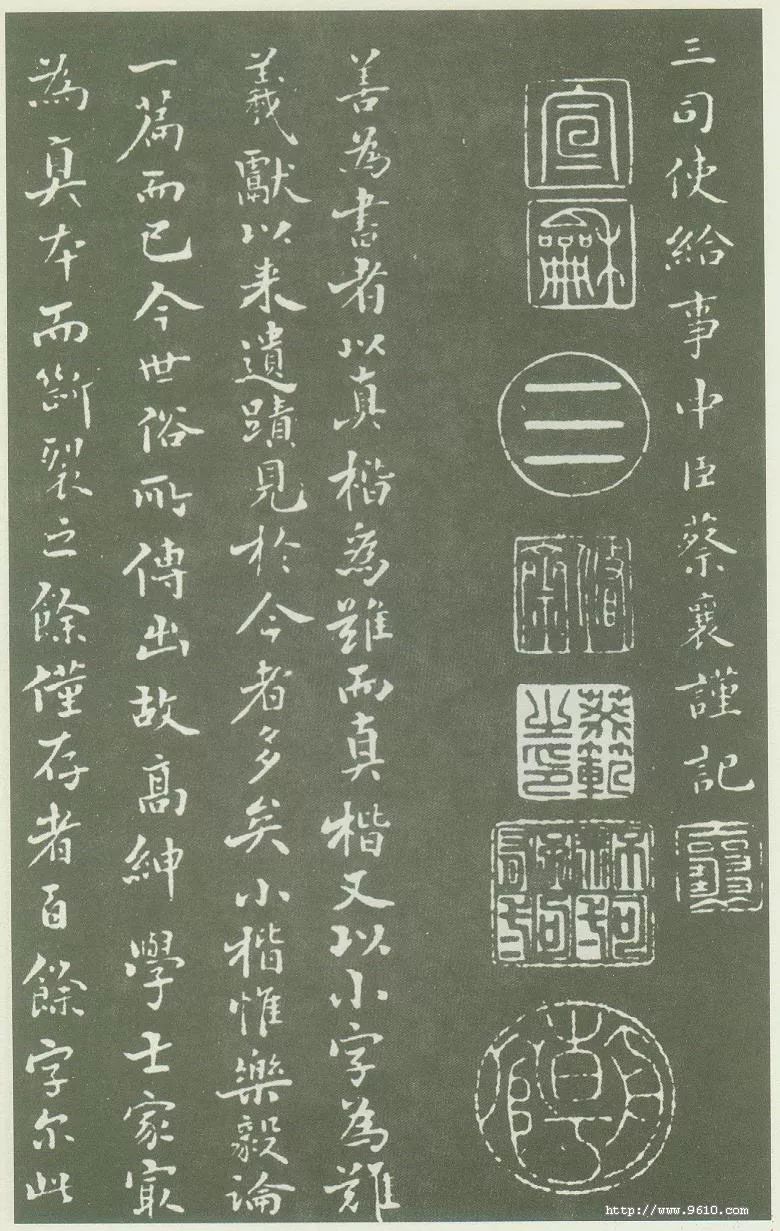 三司使給事中臣蔡襄謹記
宣
龢
三
蔡範
之印
善為書者以真楷為難而真楷又以小字為難
羲獻以来遺蹟見於今者多矣小楷惟樂毅論
一篇而已今世俗所傳出故高紳學士家寂
為真本而斷裂之餘僅存者百餘字尔此
http://www.9610.com